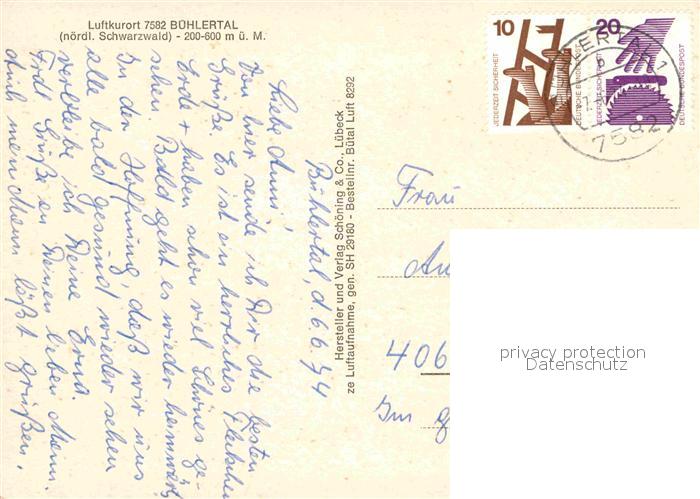 Luftkurort 7582 BÜHLERTAL
(nördl. Schwarzwald) - 200-600 m ü. M.
10
JEDERZEIT SICHERHEIT
DEUTSCHE BUNDESPOST
20
JEDERZEIT SICHERHEIT
DEUTSCHE BUNDESPOST
7582
Bühlertal, d. 6.6.74
Liebe Anni!
Von hier sende ich Dir die besten
Grüße. Es ist ein herrliches Fleckchen
Erde + haben schon viel Schönes ge-
sehen. Bald geht es wieder heimwärts
In der Hoffnung, daß wir uns
alle bald gesund wieder sehen
verbleibe ich Deine Erna.
Grüße an Deinen lieben Mann.
Auch mein Mann läßt grüßen.
Hersteller und Verlag Schöning & Co., Lübeck
ze Luftaufnahme, gen. SH 29180 - Bestellnr. Bütal Luft 8292
Frau
406
Im
privacy protection
Datenschutz